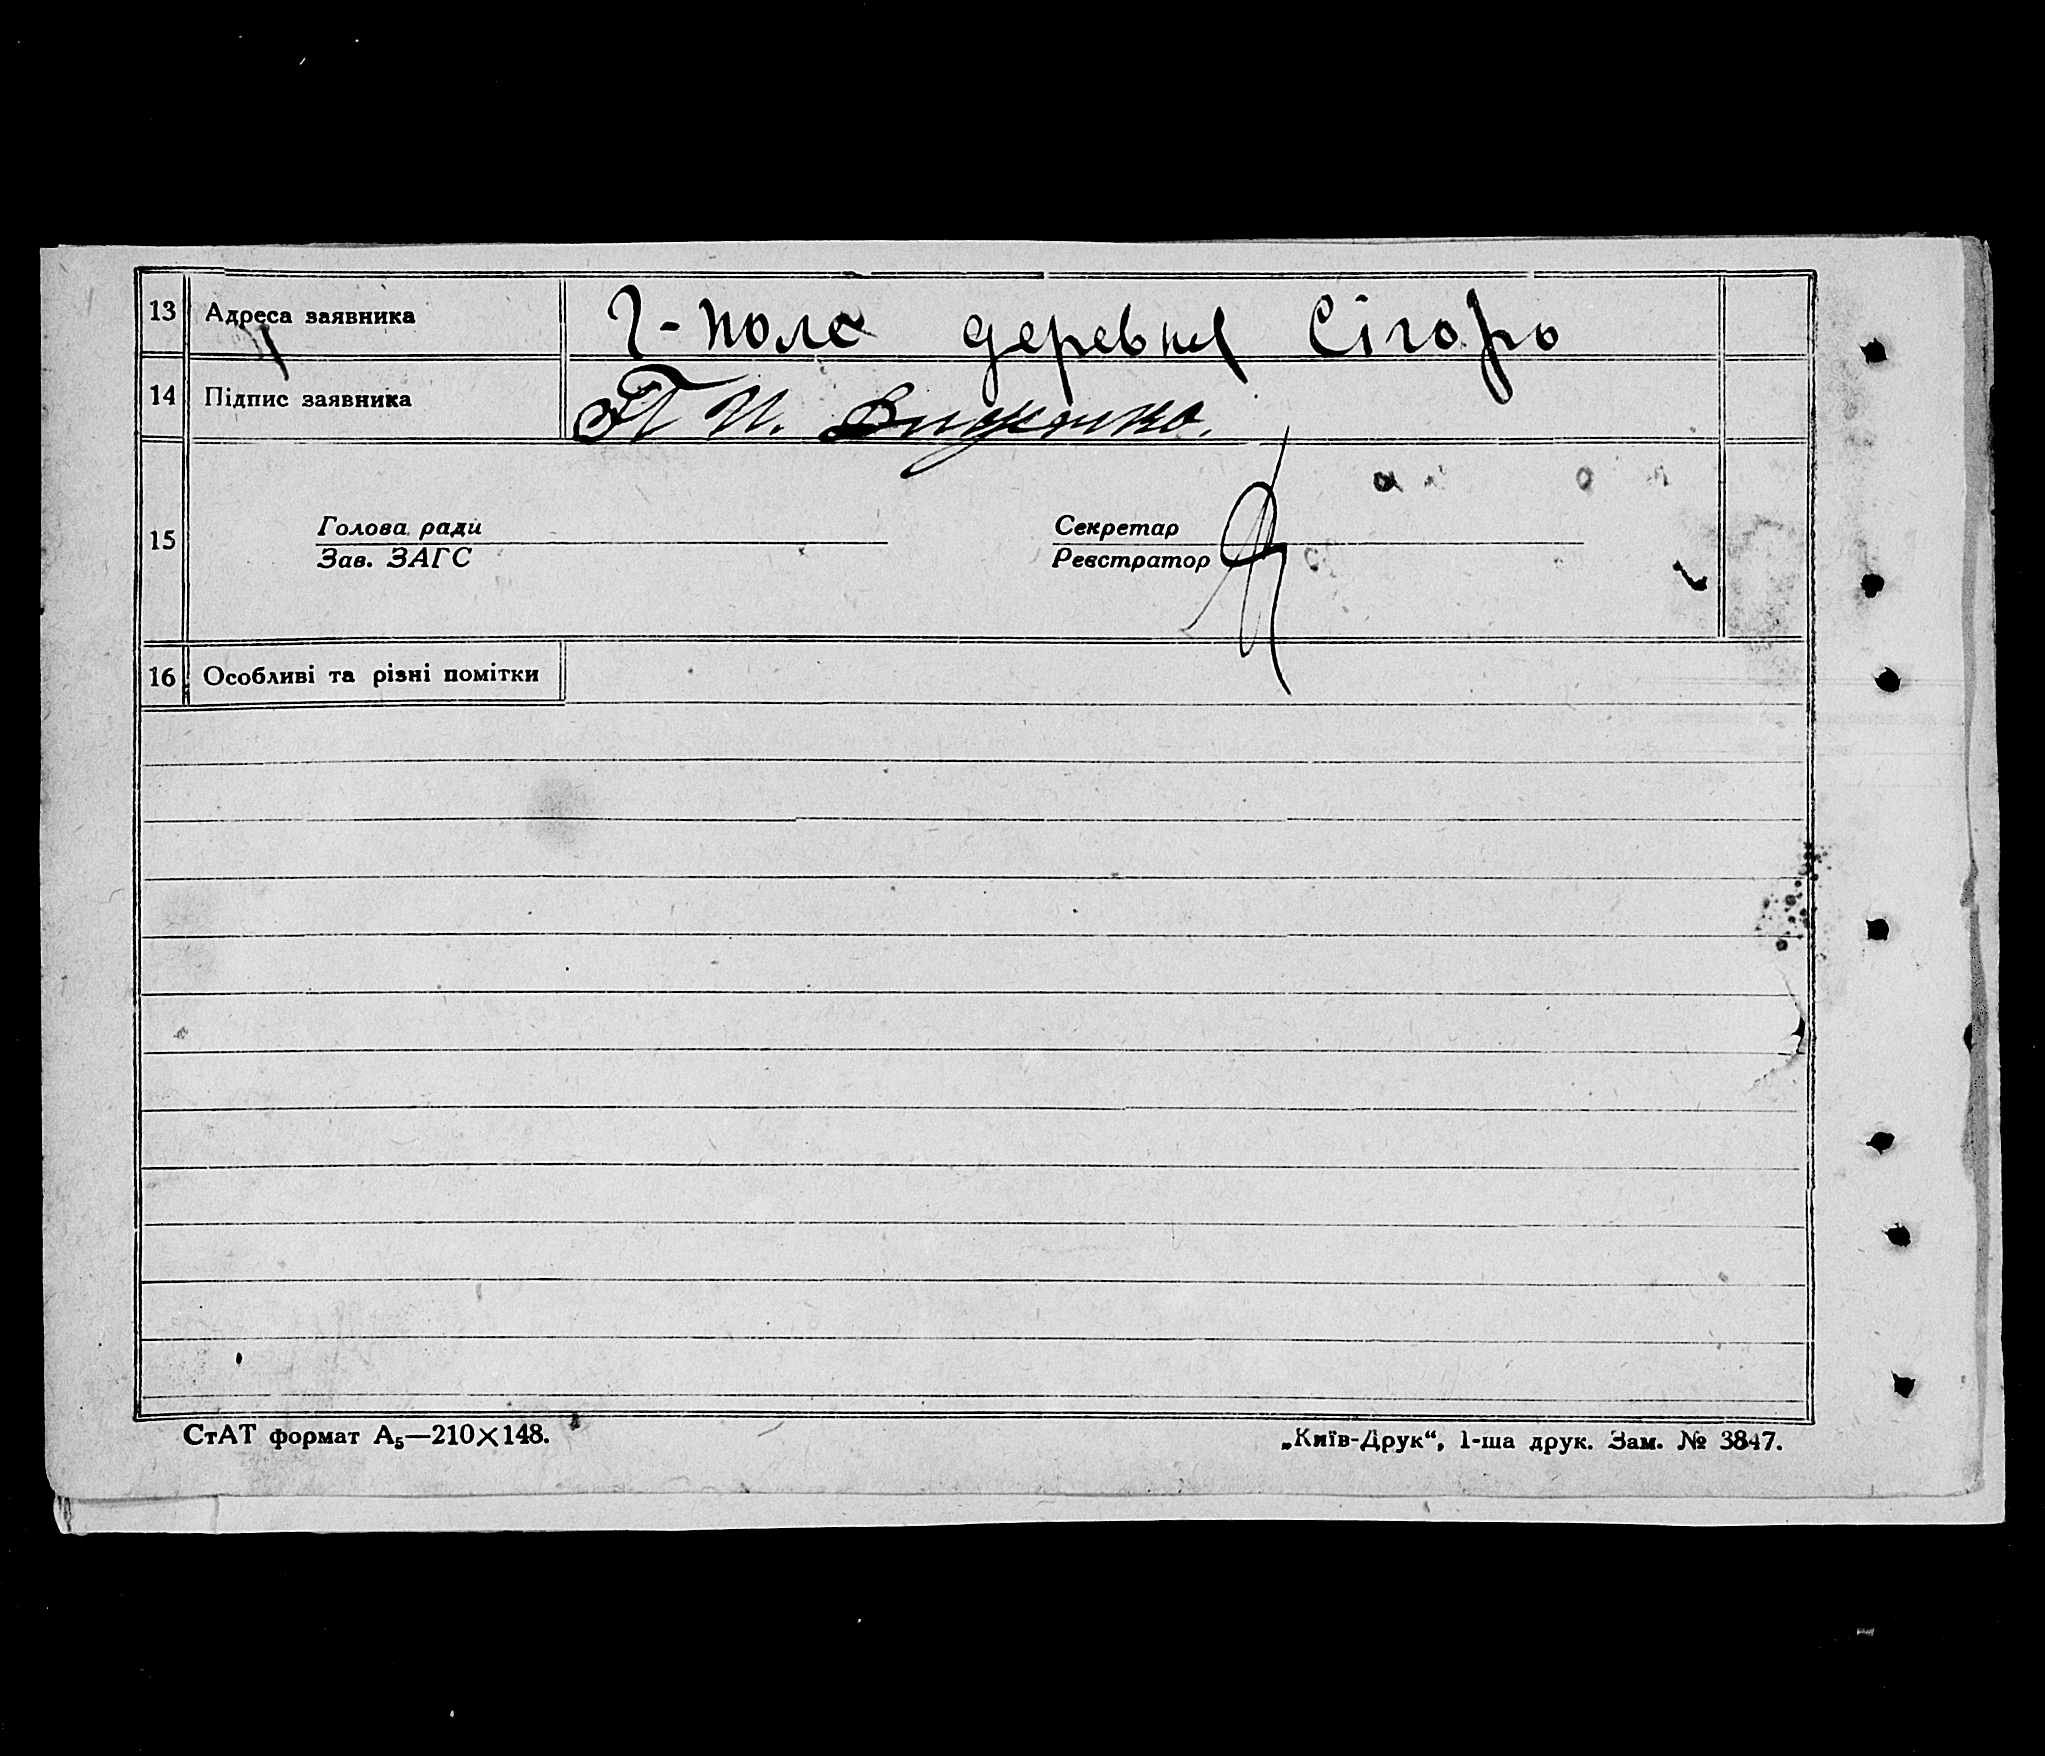 13 Адреса заявника Г-поле деревня Сігоро
14 Підпис заявника
15 Голова ради Секретар
Зав. ЗАГС Реєстратор
16 Особливі та різні помітки
СтАТ формат А₅—210×148. „Київ-Друк“, 1-ша друк. Зам. № 3847.